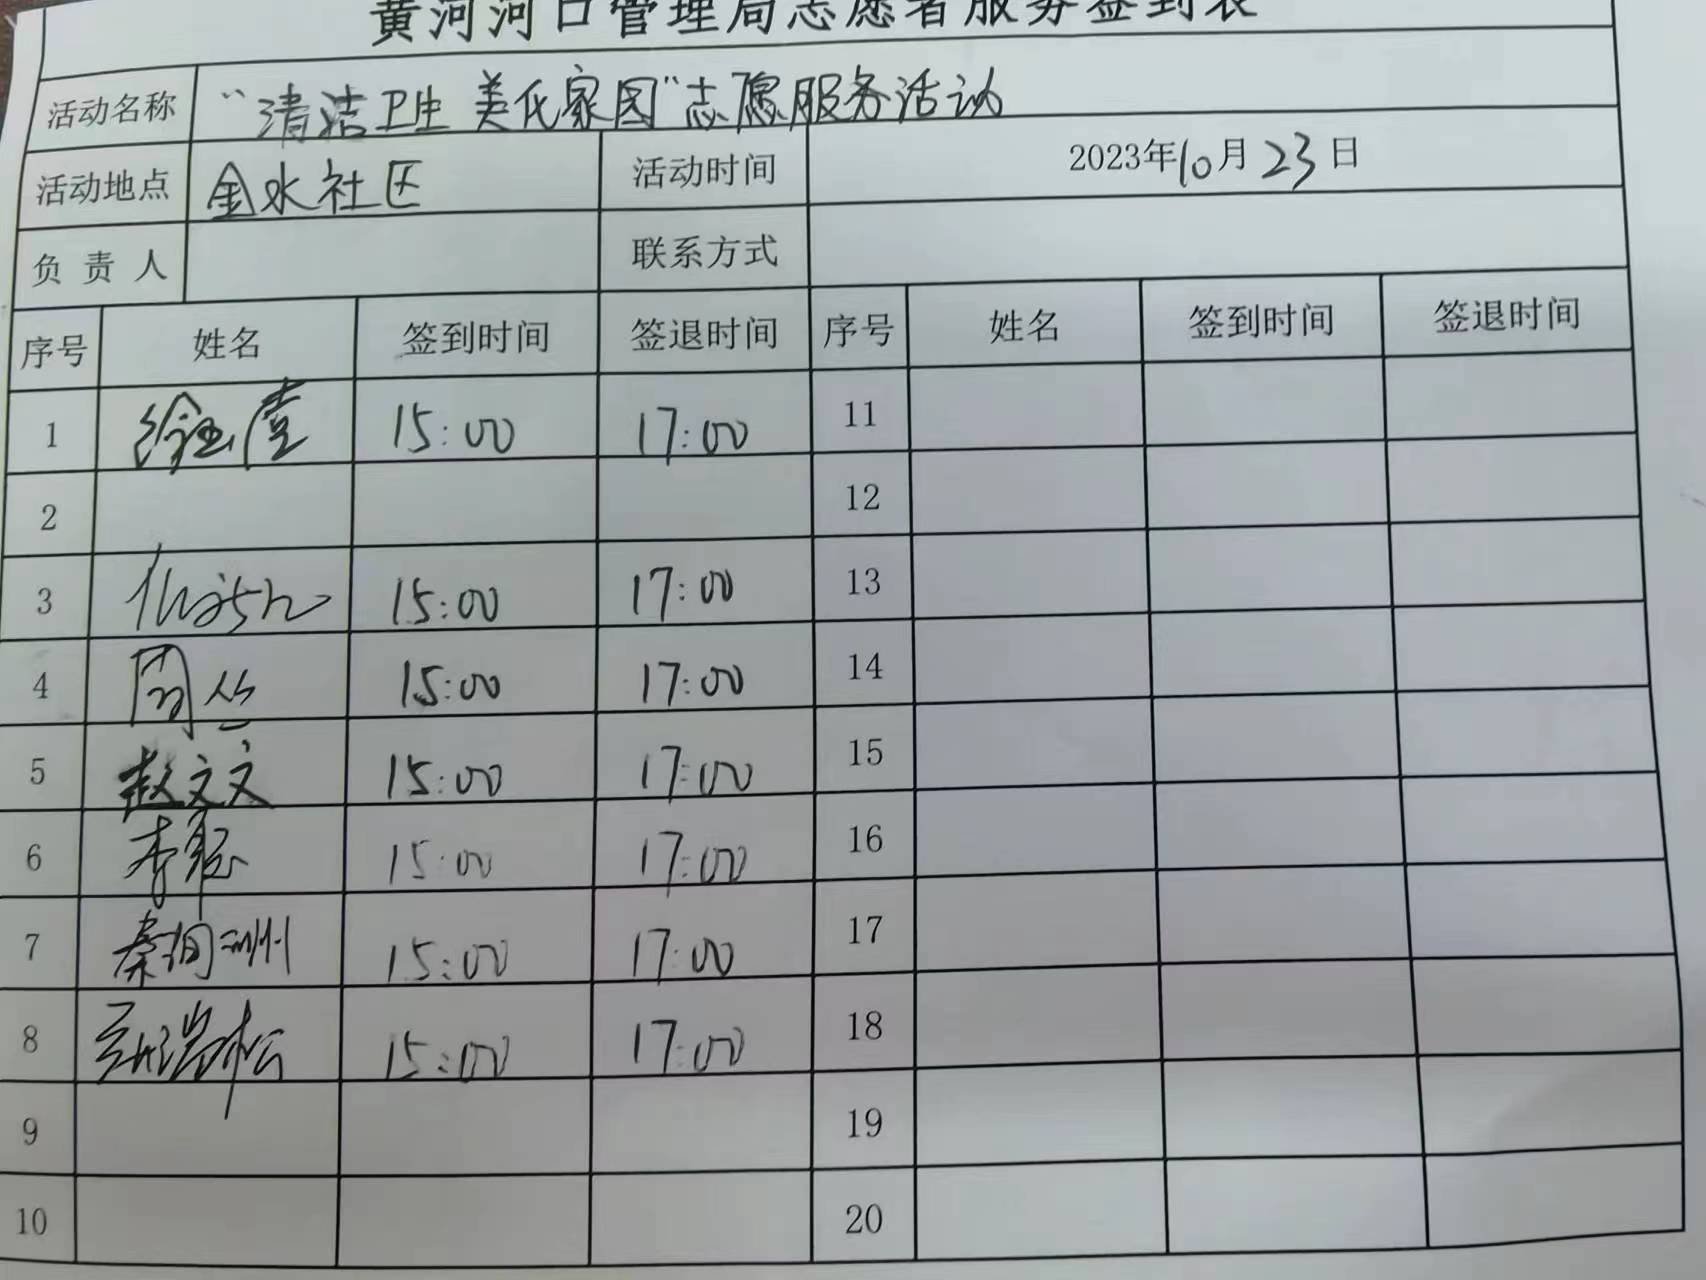 黄河河口管理局志愿者服务签到表
活动名称 “清洁卫生 美氏家园”志愿服务活动
活动地点 金水社区 活动时间 2023年10月23日
负责人 联系方式
序号 姓名 签到时间 签退时间 序号 姓名 签到时间 签退时间
1 15:00 17:00 11
2 12
3 15:00 17:00 13
4 周丛 15:00 17:00 14
5 赵文文 15:00 17:00 15
6 李聪 15:00 17:00 16
7 秦润洲 15:00 17:00 17
8 15:00 17:00 18
9 19
10 20